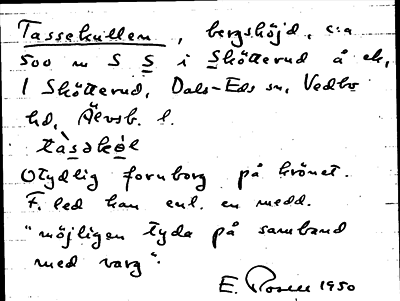 Tassekullen, bergshöjd, c:a
500 m S S i Skötterud å ek,
1 Skötterud, Dals-Eds sn, Vedbo
hd, Älvsb. l.
tàsəkəl
Otydlig fornborg på krönet.
F. led kan enl. en medd.
"möjligen tyda på samband
med varg".
E. Rosell 1950